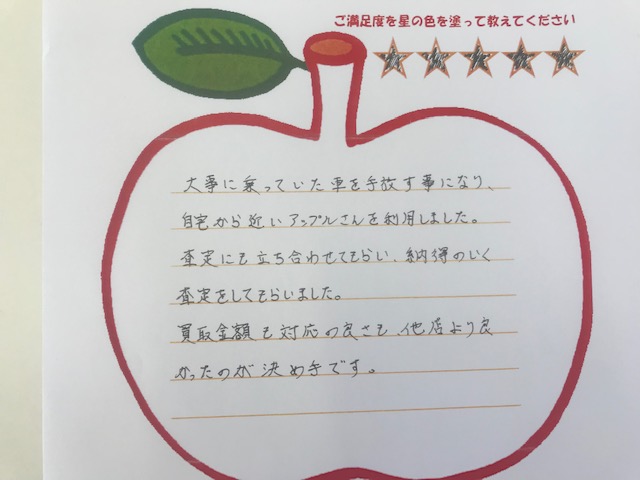 ご満足度を星の色を塗って教えてください
大事に乗っていた車を手放す事になり、
自宅から近いアップルさんを利用しました。
査定にも立ち合わせてもらい、納得のいく
査定をしてもらいました。
買取金額も対応の良さも、他店より良
かったのが決め手です。